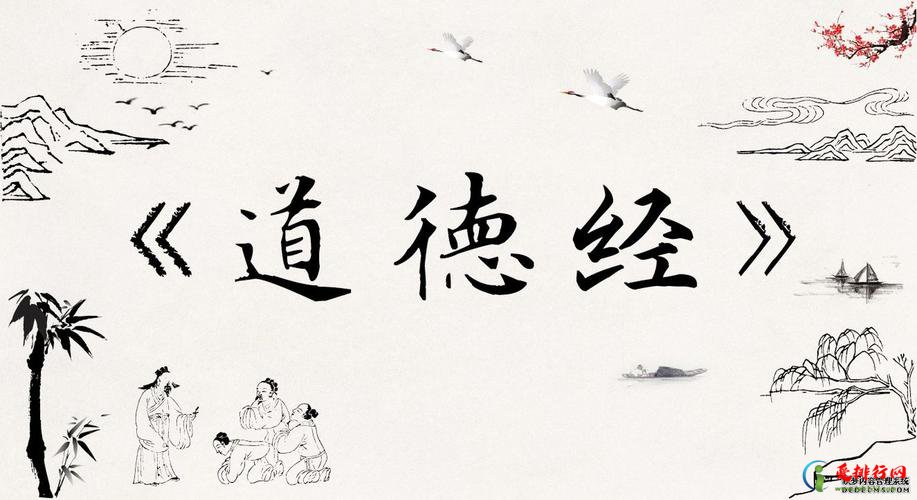 《道德经》
爱排行网
织梦内容管理系统
DEDECMS.COM